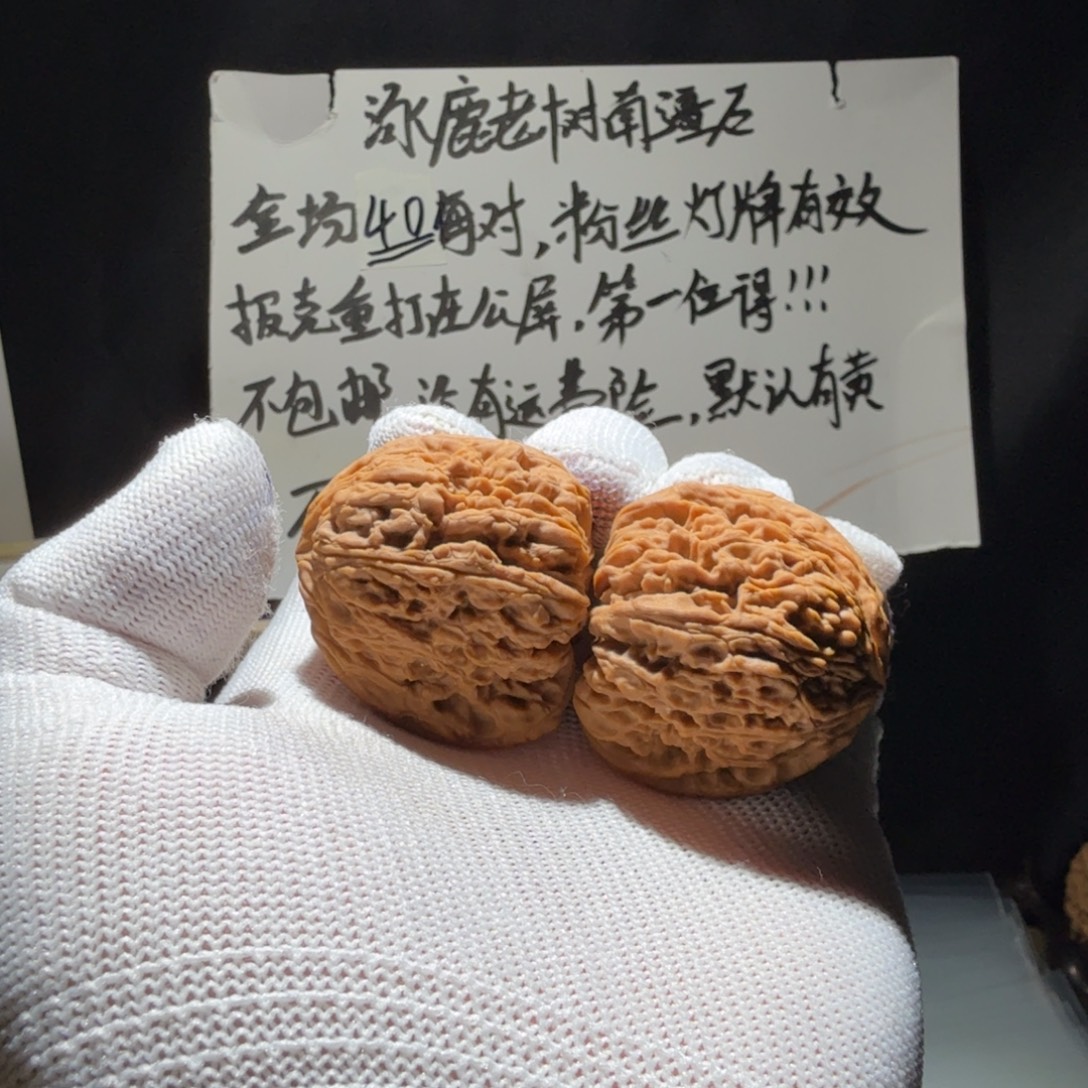 涿鹿老树南疆石
全场40每对,粉丝灯牌有效
报克重打在公屏.第一位得!!!
不包邮 没有运费险,默认有黄